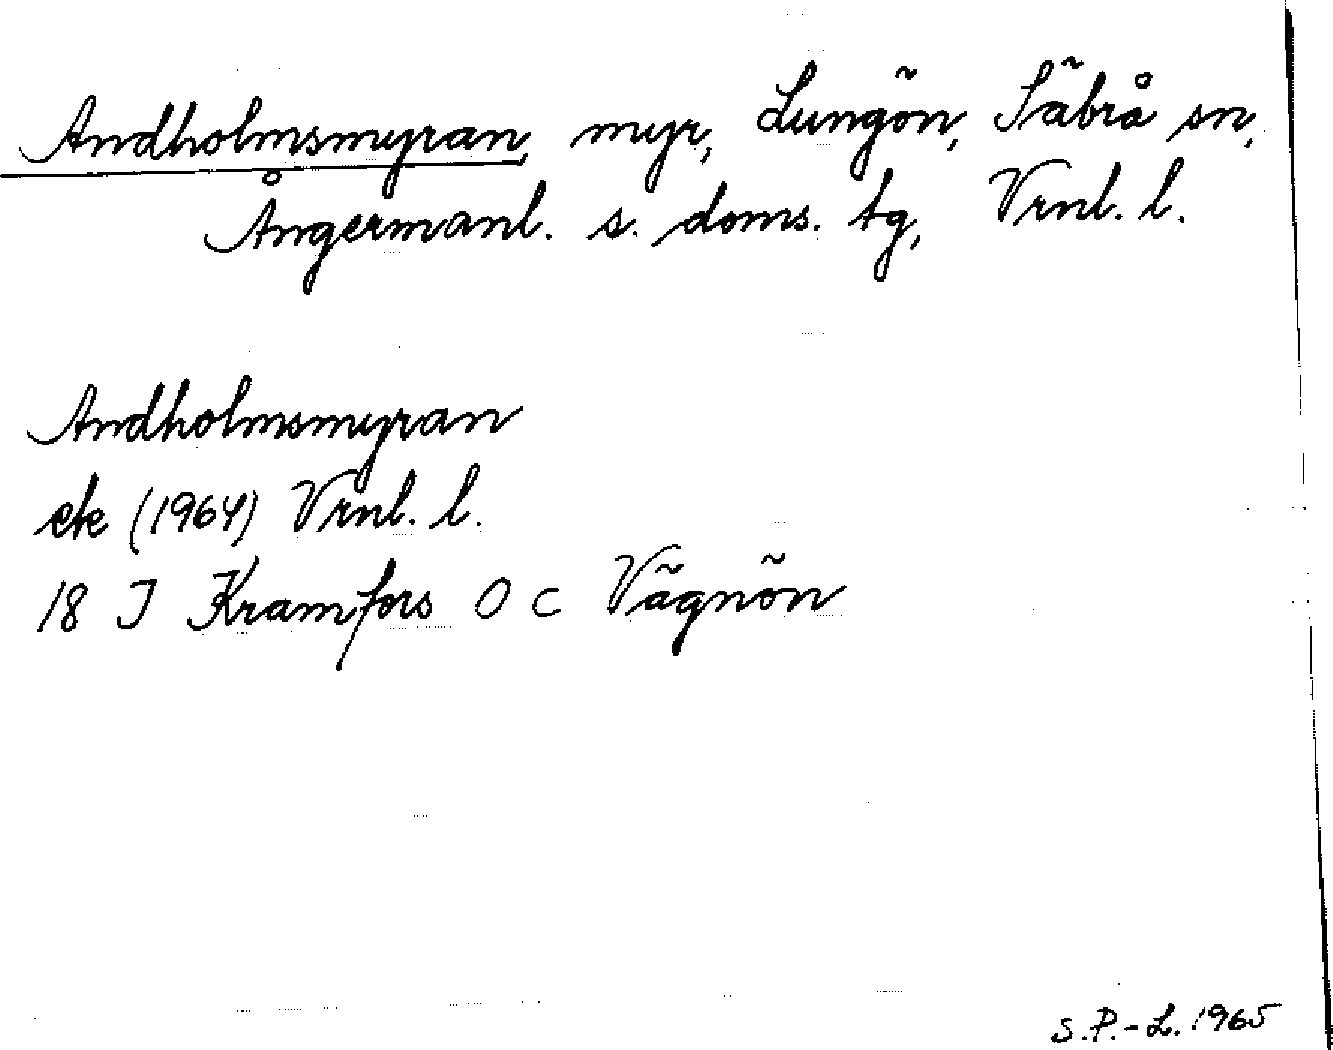 Andholmsmyran, myr, Lungön, Säbrå sn,
Ångermanl. s. doms. tg, Vrnl. l.
Andholmsmyran
ek (1964) Vrnl. l.
18 I Kramfors O c Vägnön
S.P.-L. 1965